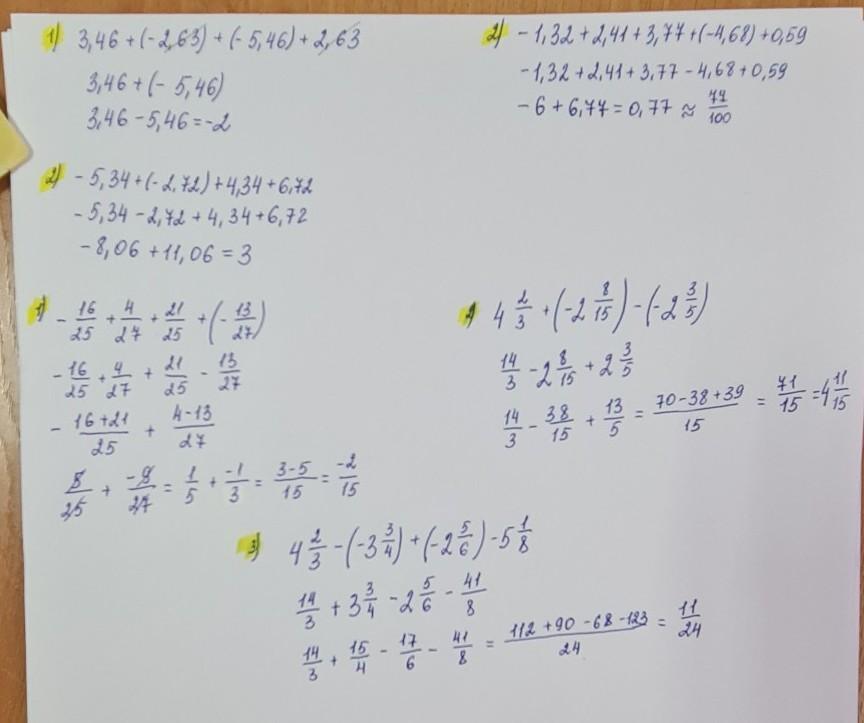 1) 3,46 + (-2,63) + (-5,46) + 2,63
3,46 + (- 5,46)
3,46 - 5,46 = -2
2) -1,32 + 2,41 + 3,77 + (-4,68) + 0,59
-1,32 + 2,41 + 3,77 - 4,68 + 0,59
-6 + 6,77 = 0,77 ≈ 77/100
2) -5,34 + (-2,72) + 4,34 + 6,72
-5,34 - 2,72 + 4,34 + 6,72
-8,06 + 11,06 = 3
1) -16/25 + 4/27 + 21/25 + (-13/27)
-16/25 + 4/27 + 21/25 - 13/27
- 16+21/25 + 4-13/27
5/25 + -9/27 = 1/5 + -1/3 = 3-5/15 = -2/15
2) 4 2/3 + (-2 8/15) - (-2 3/5)
14/3 - 2 8/15 + 2 3/5
14/3 - 38/15 + 13/5 = 70-38+39/15 = 71/15 = 4 11/15
3) 4 2/3 - (-3 3/4) + (-2 5/6) - 5 1/8
14/3 + 3 3/4 - 2 5/6 - 41/8
14/3 + 15/4 - 17/6 - 41/8 = 112+90-68-123/24 = 11/24